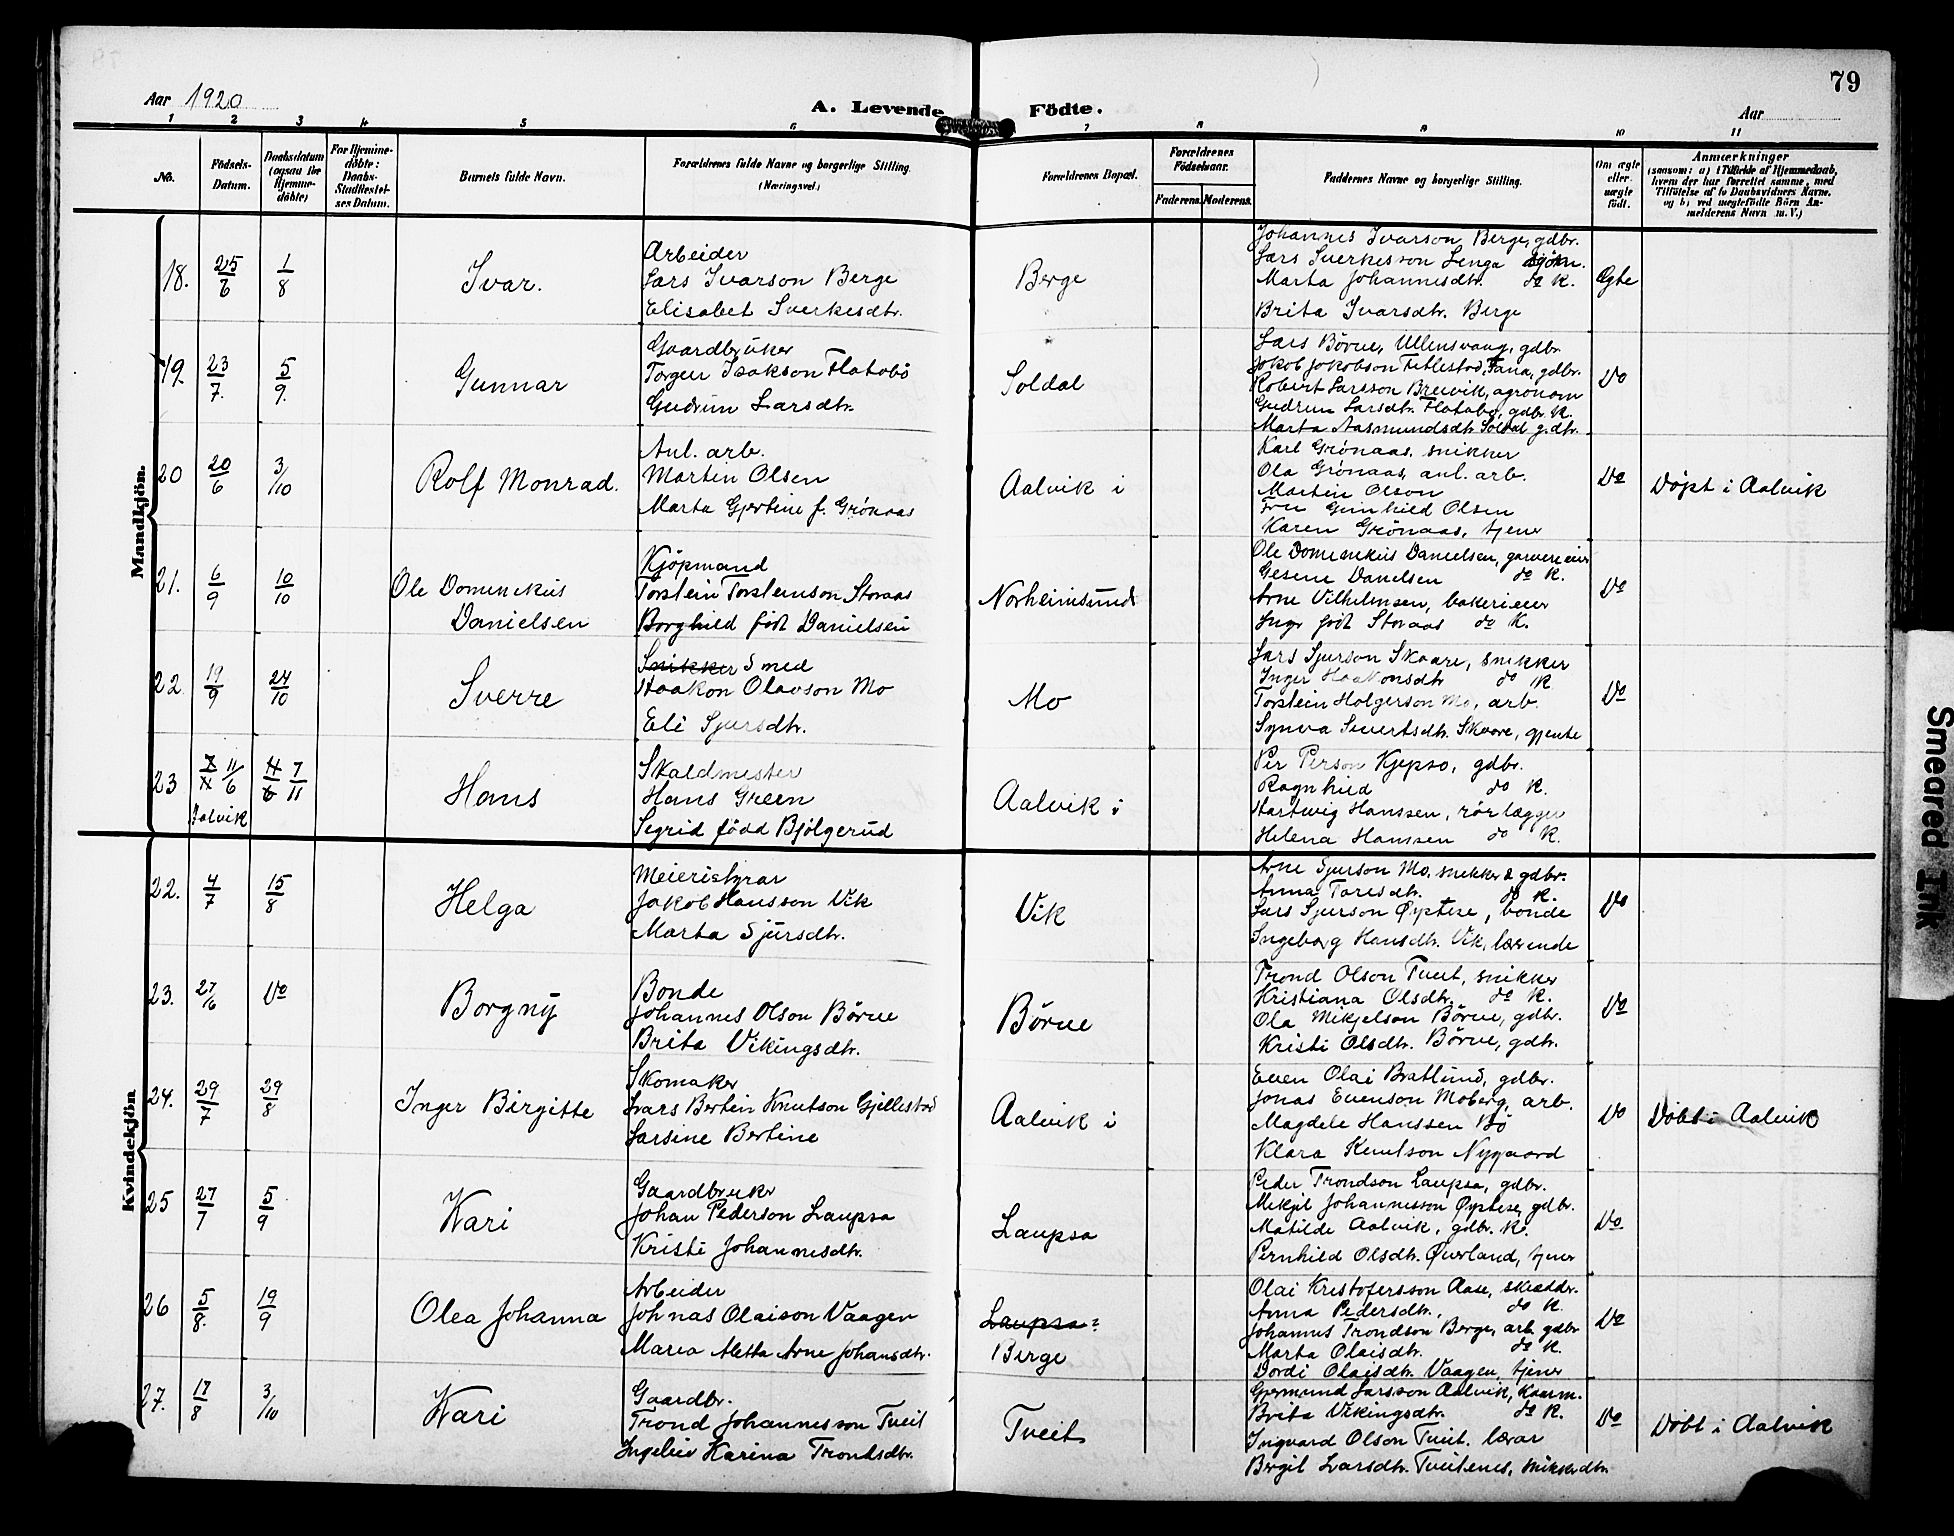 79
Aar 1920
A. Levende Födte.
Aar
1 2 3 4 5 6 7 8 9 10 11
No.
Födsels-Datum.
Daabsdatum (ogsaa for Hjemme-döbte)
For Hjemme-döbte: Daabs-Stadfæstel-ses Datum.
Barnets fulde Navn.
Forældrenes fulde Navne og borgerlige Stilling.
(Næringsvei.)
Forældrenes Bopæl.
Forældrenes Födselsaar.
Faderens. Moderens.
Faddernes Navne og borgerlige Stilling.
Om ægte eller uægte födt.
Anmærkninger
(saasom: a) i Tilfælde af Hjemmedaab,
hvem der har forrettet samme, med
Tilföielse af to Daabsvidners Navne.
og b) ved uægtefödte Börn An-
melderens Navn m. V.)
Mandkjön.
18. 25/6 1/8 Ivar.
Arbeider
Lars Ivarson Berge
Elisabet Sverkesdtr.
Berge
Johannes Ivarson Berge, gdbr.
Lars Sverkesson Lenga
Marta Johannesdtr. do K.
Brita Ivarsdtr. Berge
Ægte
19. 23/7. 5/9. Gunnar
Gaardbruker
Torgeir Isakson Flatabö
Gudrun Larsdtr.
Soldal
Lars Börve, Ullensvang, gdbr.
Jakob Jakobson Titlestad, Fana, gdbr.
Robert Larsson Breivik, agronom
Gudrun Larsdtr. Flatabø, gdbr. K.
Marta Aasmundsdtr. Soldal g.dtr.
Do
20 20/6 3/10 Rolf Monrad.
Anl. arb.
Martin Olsen
Marta Gjertine f. Grönaas
Aalvik i
Karl Grönaas, snikker
Ola Grönaas, anl. arb.
Martin Olson
Fru Gunhild Olsen
Karen Grönaas, tjener
Do
Døpt i Aalvik
21. 6/9 10/10 Ole Dominekus
Danielsen
Kjöpmand
Torstein Torsteinson Storaas
Borghild født Danielsen
Norheimsund
Ole Dominekus Danielsen, garverieier
Gesine Danielsen do K.
Arne Vilhelmsen, bakerieier
Inga født Storaas do K.
Do
22 19/9 24/10 Sverre
Snikker Smed
Haakon Olavson Mo
Eli Sjursdtr.
Mo
Lars Sjurson Skaare, snikker
Inger Haakonsdtr do K
Torstein Holgerson Mo, arb.
Synva Sivertsdtr. Skaare, gjente
Do
23 11/6 7/11
Aalvik
Hans
Skaldmester
Hans Green
Sigrid född Bjölgerud
Aalvik i
Per Person Kjepso, gdbr.
Ragnhild do K.
Hartwig Hanssen, rörlægger
Helena Hanssen do K.
Kvindekjön
22. 4/7 15/8 Helga
Meieristyrar
Jakob Hansson Vik
Marta Sjursdtr.
Vik
Arne Sjurson Mo, snikker & gdbr.
Anna Toresdtr. do K.
Lars Sjurson Øystese, bonde
Ingeborg Hansdtr. Vik, lærende
Do
23. 27/6 Do Borgny
Bonde
Johannes Olson Börve
Brita Vikingsdtr.
Börve
Trond Olson Tveit, snikker
Kristiana Olsdtr. do K.
Ola Mikjelson Börve, gdbr.
Kristi Olsdtr. Börve, gdtr.
Do
24. 29/7 29/8 Inger Birgitte
Skomaker
Lars Bertein Knutson Gjellestad
Larsine Bertine
Aalvik i
Even Olai Bratlund, gdbr.
Jonas Evenson Moberg, arb.
Magdele Hanssen Bö
Klara Knutson Nygaard
Do
Døbt i Aalvik
25 27/7 5/9 Kari
Gaardbruker
Johan Pederson Laupsa
Kristi Johannesdtr.
Laupsa
Peder Trondson Laupsa, gdbr.
Mikjel Johannesson Øystese, gdbr.
Matilde Aalvik, gdbr. K.
Pernhild Olsdtr. Øverland, tjener
Do
26 5/8. 19/9 Olea Johanna
Arbeider
Johnas Olaison Vaagen
Maria Aletta Arne Johansdtr.
Laupsa
Berge
Olai Kristofersson Aase, skrædder.
Anna Pedersdtr. do K.
Johannes Trondson Berge, arb. gdbr
Marta Olaisdtr. do K.
Dordi Olaisdtr. Vaagen, tjener
Do
27. 17/8 3/10 Kari
Gaardbr.
Trond Johannesson Tveit
Ingeleiv Karina Trondsdtr.
Tveit
Gjermund Larsson Aalvik, kaarm.
Brita Vikingsdtr. do K.
Ingvard Olson Tveit. lærar
Bergit Larsdtr. Tveitenes, snikkerdtr.
Do
Döbt i Aalvik
Smeared Ink